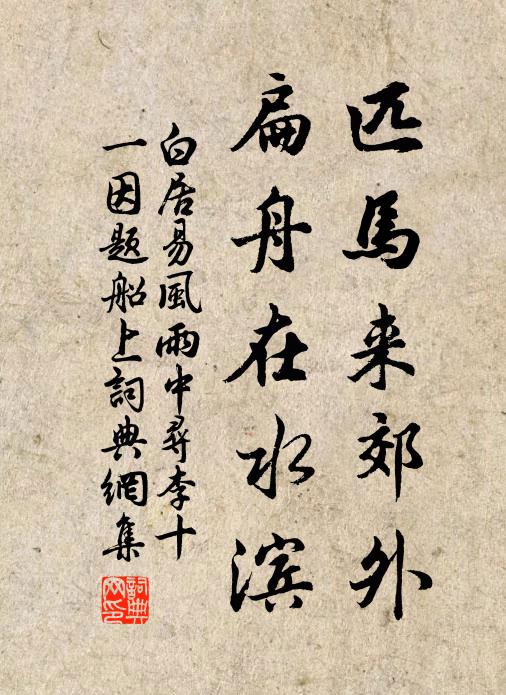 匹馬来郊外
扁舟在水滨
白居易風雨中尋李十
一因題船上詞典網集
詞典
网印